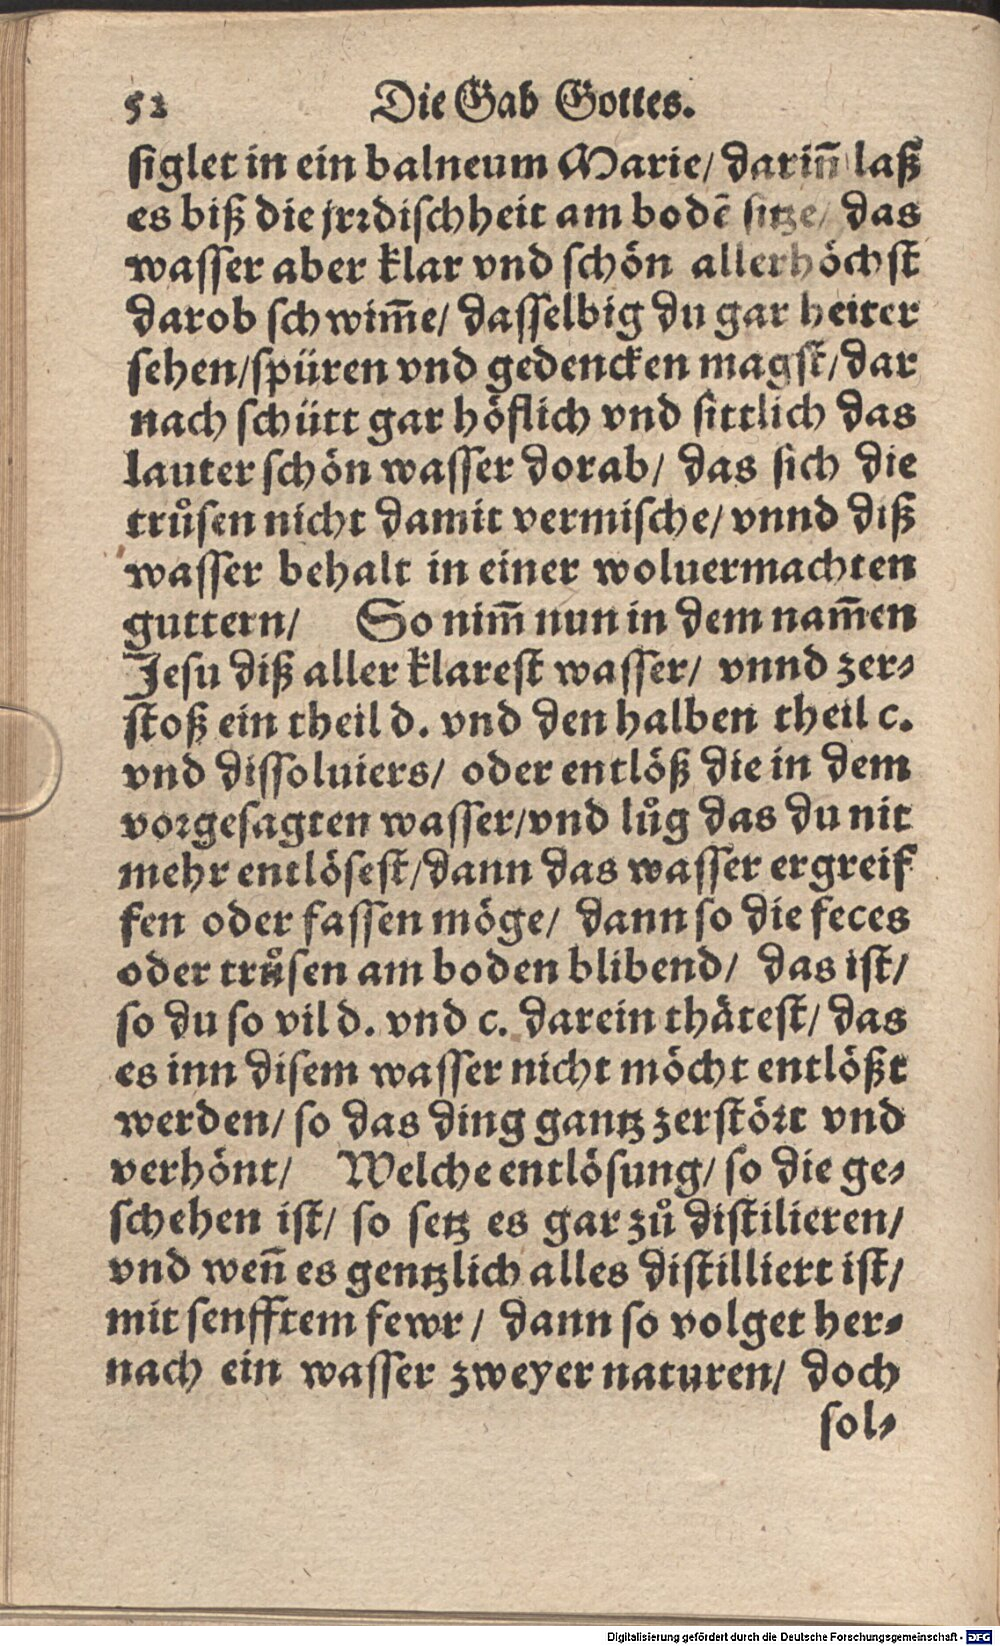 52 Die Gab Gottes.
siglet in ein balneum Marie/ dariñ laß
es biß die jrrdischheit am bodẽ sitze/ das
wasser aber klar vnd schön allerhöchst
darob schwim̃e/ dasselbig du gar heiter
sehen/spüren vnd gedencken magst/dar
nach schütt gar höflich vnd sittlich das
lauter schön wasser dorab/ das sich die
trůsen nicht damit vermische/ vnnd diß
wasser behalt in einer woluermachten
guttern/ So nim̃ nun in dem nam̃en
Jesu diß aller klarest wasser/ vnnd zer⸗
stoß ein theil d. vnd den halben theil c.
vnd dissoluiers/ oder entlöß die in dem
vorgesagten wasser/vnd lůg das du nit
mehr entlösest/dann das wasser ergreif
fen oder fassen möge/ dann so die feces
oder trůsen am boden blibend/ das ist/
so du so vil d. vnd c. darein thätest/ das
es inn disem wasser nicht möcht entlößt
werden/ so das ding gantz zerstört vnd
verhönt/ Welche entlösung/ so die ge⸗
schehen ist/ so setz es gar zů distilieren/
vnd weñ es gentzlich alles distilliert ist/
mit senfftem fewr/ dann so volget her⸗
nach ein wasser zweyer naturen/ doch
sol⸗
Digitalisierung gefördert durch die Deutsche Forschungsgemeinschaft - DFG